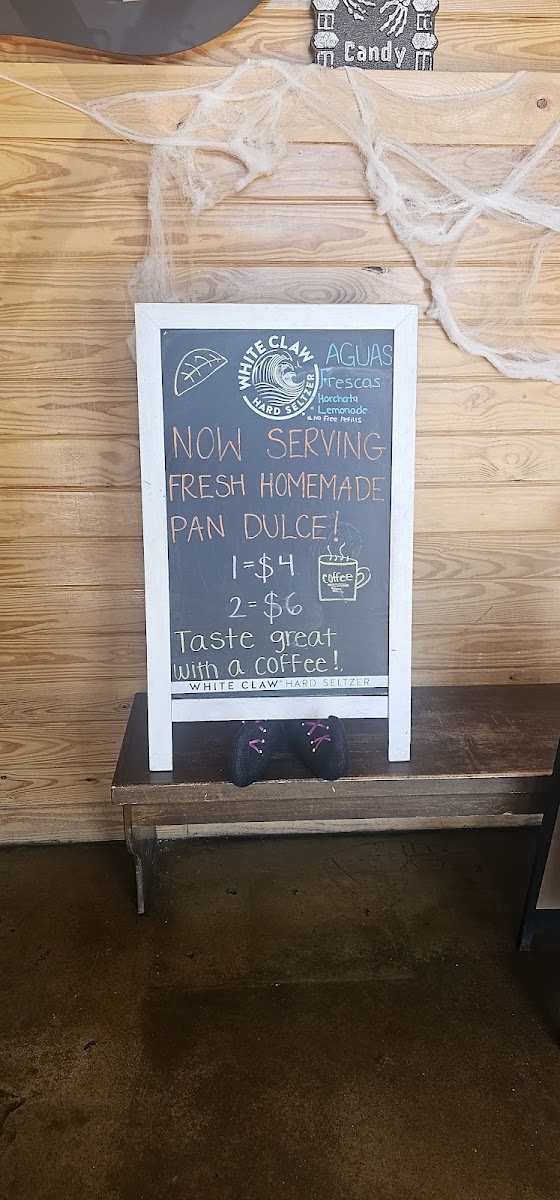 Candy
WHITE CLAW
HARD SELTZER
AGUAS
Frescas
Horchata
Lemonade
No free refills
NOW SERVING
FRESH HOMEMADE
PAN DULCE!
1=$4
2=$6
coffee
Taste great
with a coffee!
WHITE CLAW HARD SELTZER